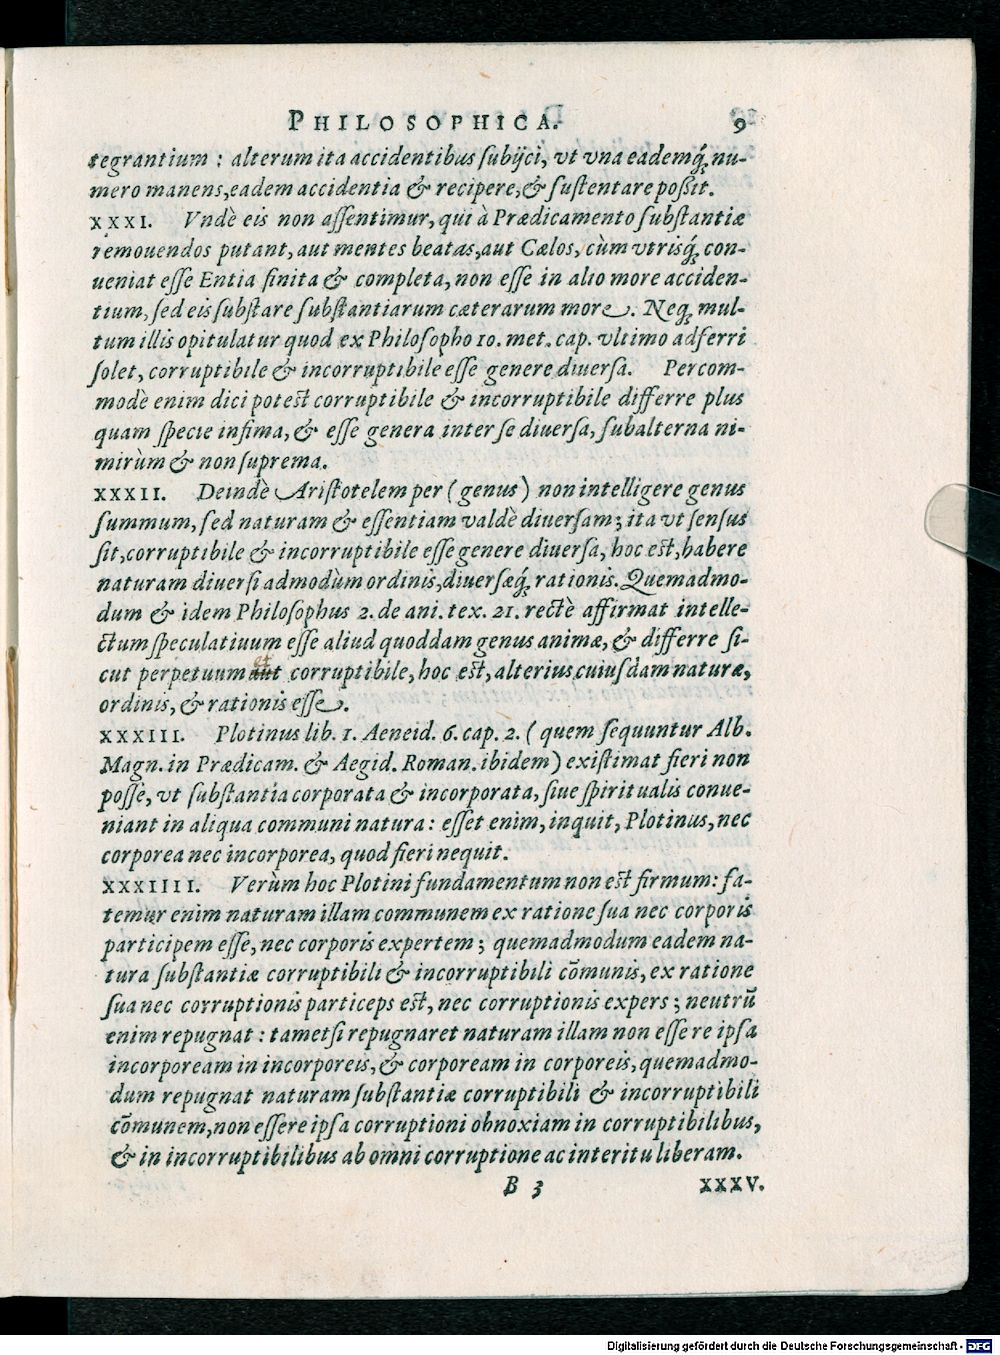 PHILOSOPHICA. 9
tegrantium : alterum ita accidentibus subijci, vt vna eademq́; nu-
mero manens, eadem accidentia & recipere, & sustentare possit.
XXXI. Vndè eis non assentimur, qui à Prædicamento substantiæ
remouendos putant, aut mentes beatas, aut Cælos, cùm vtrisq́; con-
ueniat esse Entia finita & completa, non esse in alio more acciden-
tium, sed eis substare substantiarum cæterarum more. Neq; mul-
tum illis opitulatur quod ex Philosopho 10. met. cap. vltimo adferri
solet, corruptibile & incorruptibile esse genere diuersa. Percom-
modè enim dici potest corruptibile & incorruptibile differre plus
quam specie infima, & esse genera inter se diuersa, subalterna ni-
mirùm & non suprema.
XXXII. Deindè Aristotelem per (genus) non intelligere genus
summum, sed naturam & essentiam valdè diuersam; ita vt sensus
sit, corruptibile & incorruptibile esse genere diuersa, hoc est, habere
naturam diuersi admodùm ordinis, diuersæq́; rationis. Quemadmo-
dum & idem Philosophus 2. de ani. tex. 21. rectè affirmat intelle-
ctum speculatiuum esse aliud quoddam genus animæ, & differre si-
et
cut perpetuum aut corruptibile, hoc est, alterius cuiusdam naturæ,
ordinis, & rationis esse.
XXXIII. Plotinus lib. 1. Aeneid. 6. cap. 2. (quem sequuntur Alb.
Magn. in Prædicam. & Aegid. Roman. ibidem) existimat fieri non
posse, vt substantia corporata & incorporata, siue spiritualis conue-
niant in aliqua communi natura : esset enim, inquit, Plotinus, nec
corporea nec incorporea, quod fieri nequit.
XXXIIII. Verùm hoc Plotini fundamentum non est firmum: fa-
temur enim naturam illam communem ex ratione sua nec corporis
participem esse, nec corporis expertem; quemadmodum eadem na-
tura substantiæ corruptibili & incorruptibili cõmunis, ex ratione
sua nec corruptionis particeps est, nec corruptionis expers; neutrũ
enim repugnat : tametsi repugnaret naturam illam non esse re ipsa
incorpoream in incorporeis, & corpoream in corporeis, quemadmo-
dum repugnat naturam substantiæ corruptibili & incorruptibili
cõmunem, non esse re ipsa corruptioni obnoxiam in corruptibilibus,
& in incorruptibilibus ab omni corruptione ac interitu liberam.
B 3 XXXV.
Digitalisierung gefördert durch die Deutsche Forschungsgemeinschaft - DFG